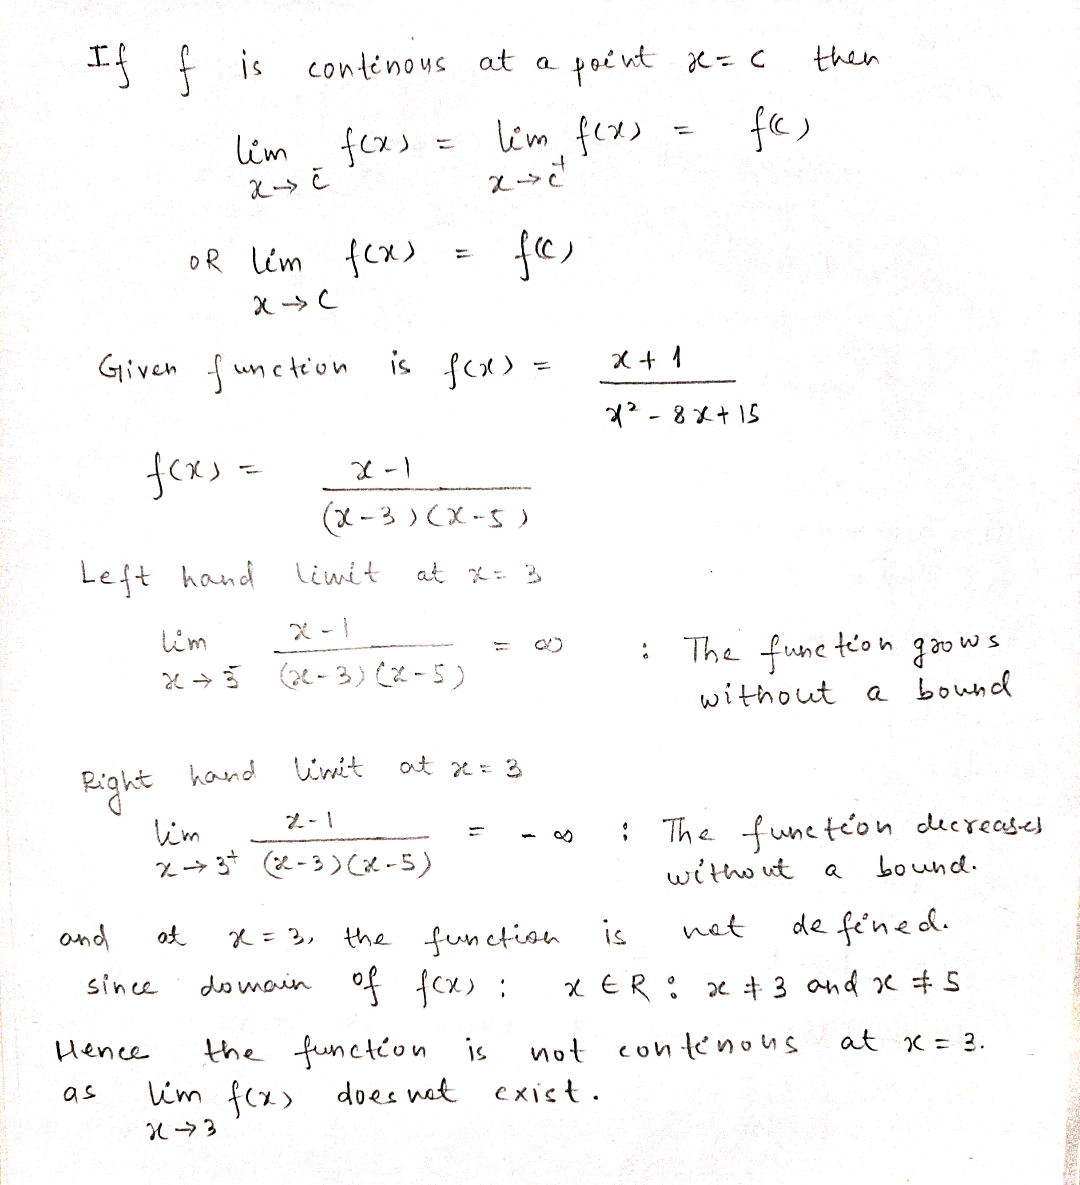 If f is continous at a point x = c then
lim f(x) = lim f(x) = f(c)
x→c⁻ x→c⁺
OR lim f(x) = f(c)
x→c
Given function is f(x) = x + 1
x² - 8x + 15
f(x) = x - 1
(x-3)(x-5)
Left hand limit at x = 3
lim x - 1 = ∞ : The function grows
x→3⁻ (x-3)(x-5) without a bound
Right hand limit at x = 3
lim x - 1 = - ∞ : The function decreases
x→3⁺ (x-3)(x-5) without a bound.
and at x = 3, the function is not defined.
since domain of f(x) : x ∈ R : x ≠ 3 and x ≠ 5
Hence the function is not continous at x = 3.
as lim f(x) does not exist.
x→3